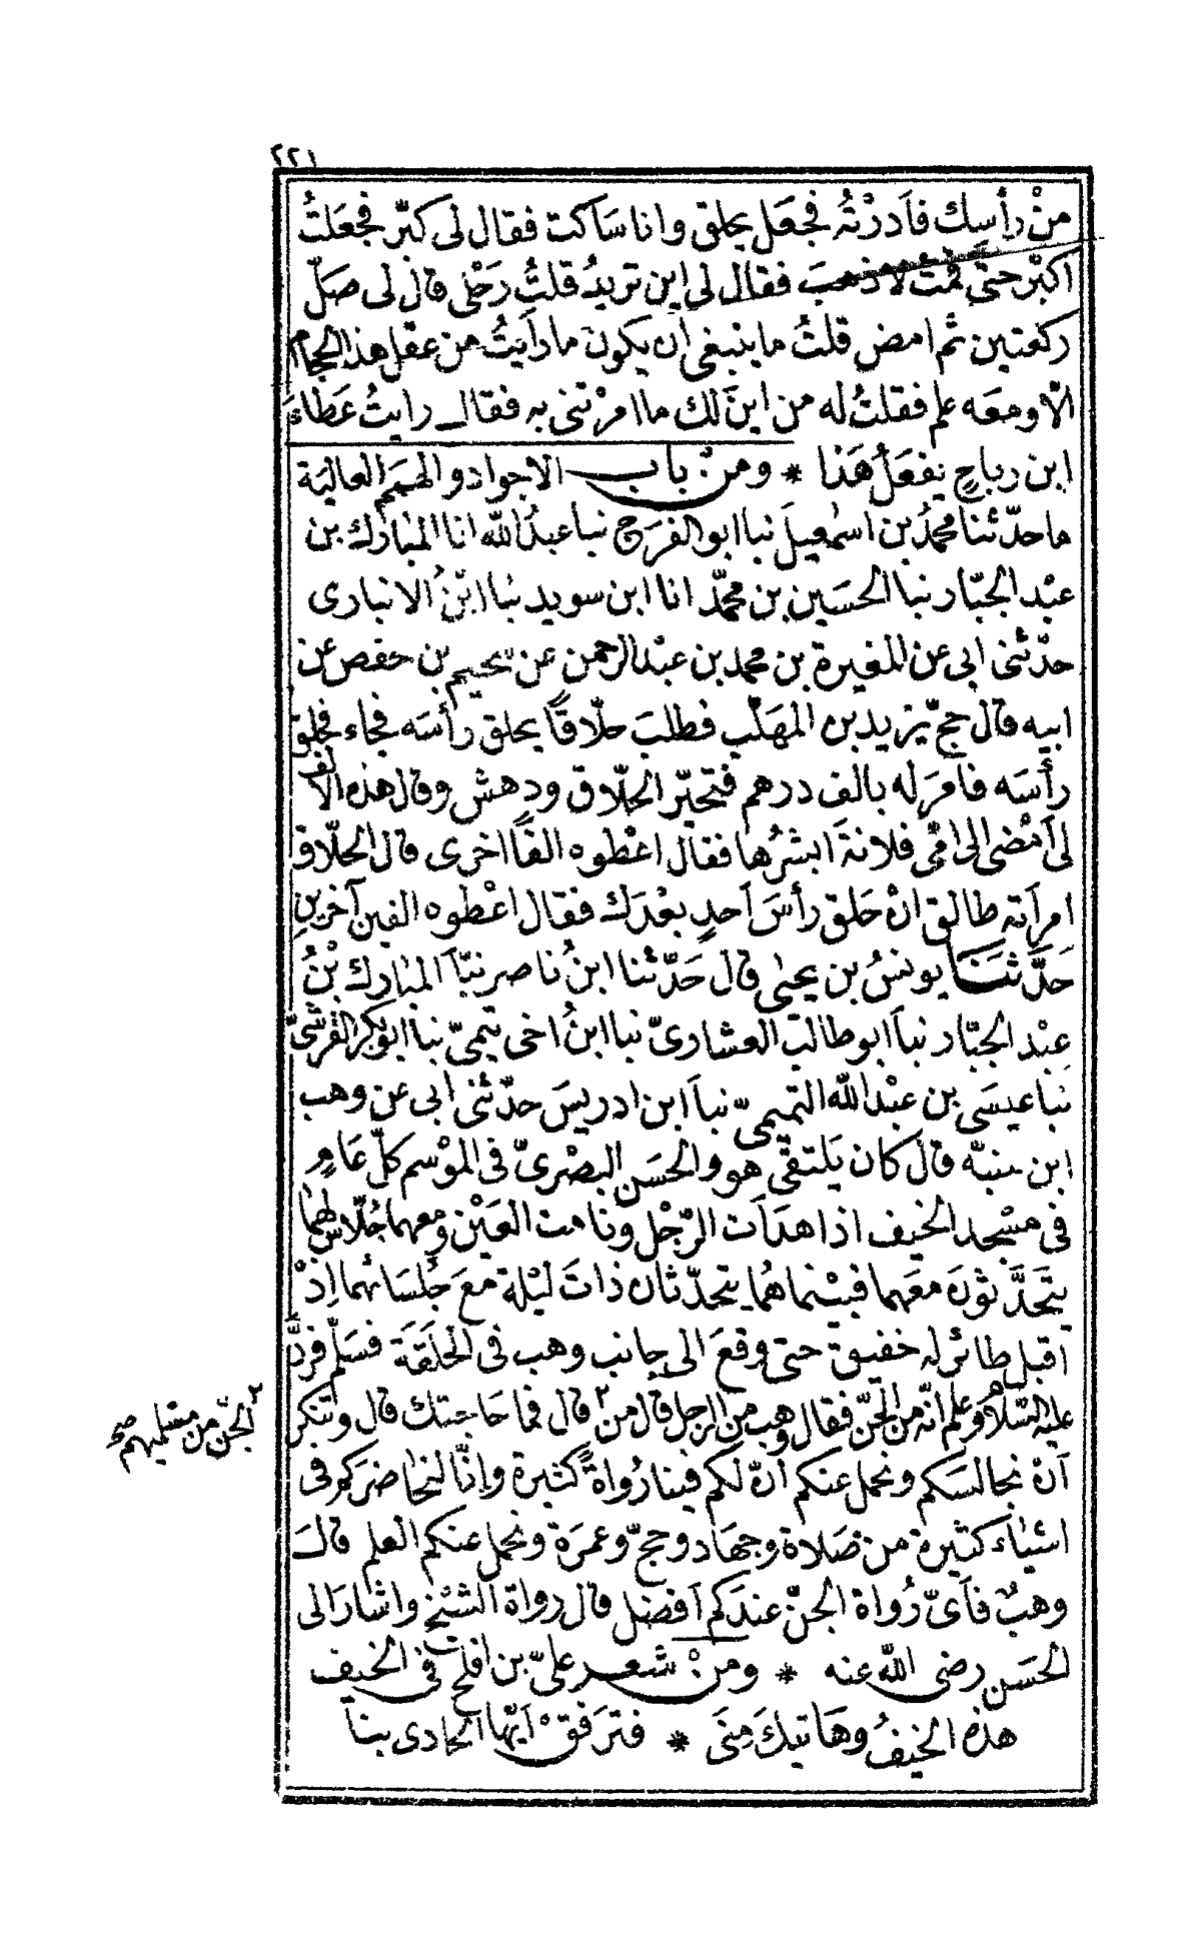 ٢٢١
من رأسك فأدرته فجعل يحلق وانا ساكت فقال لى كبّر فجعلت
اكبّر حتى قمت لاذهب فقال لى اين تريد قلت رحلى قال لى صلّ
ركعتين ثم امض قلت ما ينبغى أن يكون ما رأيت من عقل هذا الحجام
الّا ومعه علم فقلت له من اين لك ما امرتنى به فقال رايت عطاء
ابن رباح يفعل هذا * ومن باب الاجواد والهمم العالية
ما حدّثنا محمد بن اسمعيل نبا ابو الفرج نبا عبد الله انا المبارك بن
عبد الجبّار نبا الحسين بن محمّد انا ابن سويد نبا ابن الانبارى
حدّثنى ابى عن المغيرة بن محمد بن عبد الرحمن عن سحيم بن حفص عن
ابيه قال حجّ يزيد بن المهلّب فطلب حلّاقًا يحلق رأسه فجاء فحلق
رأسه فامر له بالف درهم فتحيّر الحلّاق ودهش وقال هذه الالف
لى أمضى الى امّى فلانة ابشّرها فقال اعطوه الفًا اخرى قال الحلّاق
امرأته طالق ان حلق رأس أحدٍ بعدك فقال اعطوه الفين آخرين
حدّثنا يونس بن يحيى قال حدّثنا ابن ناصر نبّأ المبارك بن
عبد الجبّار نبأ ابو طالب العشارىّ نبا ابن اخى تيمىّ نبا ابو بكر القرشىّ
نبا عيسى بن عبد الله التميمىّ نبأ ابن ادريس حدّثنى ابى عن وهب
ابن منبّه قال كان يلتقى هو والحسن البصرىّ فى الموسم كلّ عامٍ
فى مسجد الخيف اذا هدأت الرّجل ونامت العين ومعهما جلّاس لهما
يتحدّثون معهما فبينما هما يتحدّثان ذات ليلة مع جلسائهما إذ
اقبل طائر له خفيق حتى وقع الى جانب وهب فى الحلقة فسلّم فردّ
عليه السّلام وعلم انّه من الجنّ فقال وهب من الرجل قال من٢ قال فما حاجتك قال وتنكر
٢ الجنّ من مسلميهم صح
أن نجالسكم ونحمل عنكم انّ لكم فينا رُواةً كثيرة وإنّا لنحاضركم فى
اشياء كثيرة من صلاة وجهاد وحجّ وعمرة ونحمل عنكم العلم قال
وهب فأىّ رُواة الجنّ عندكم أفضل قال رواة الشيخ واشار الى
الحسن رضى الله عنه * ومن شعر علىّ بن افلح فى الخيف
هذه الخيف وهاتيك منى * فترفق أيّها الحادى بنا